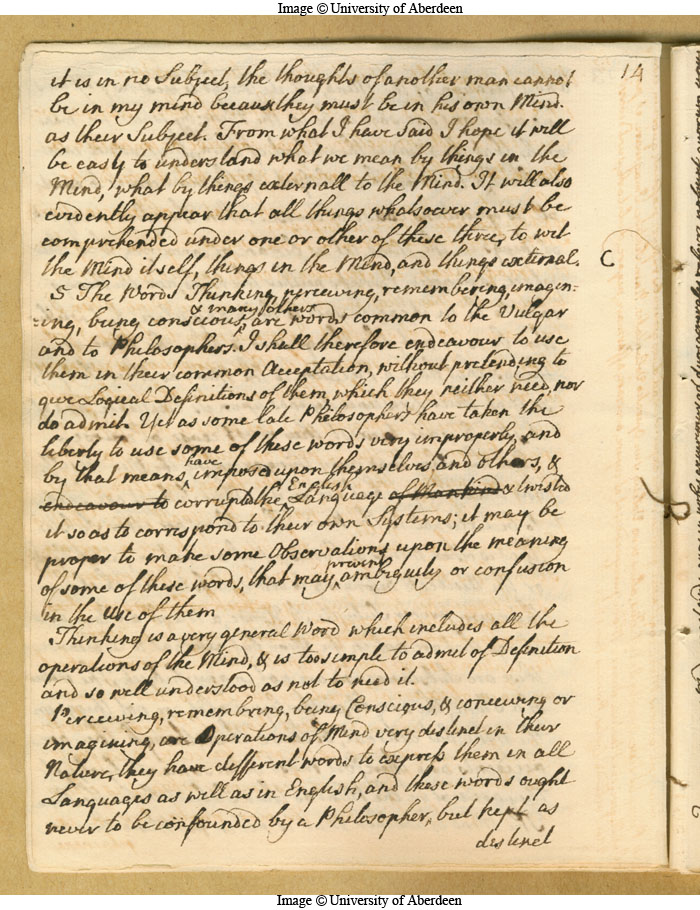 Image © University of Aberdeen
14
it is in no Subject, the thoughts of another man cannot
be in my mind because they must be in his own Mind.
as their Subject. From what I have said I hope it will
be easy to understand what we mean by things in the
Mind, what by things externall to the Mind. It will also
evidently appear that all things whatsoever must be
comprehended under one or other of these three, to wit
the Mind itself, things in the Mind, and things external.
C
5 The Words Thinking, perceiving, remembering, imagin-
& many others
-ing, being conscious, are words common to the Vulgar
and to Philosophers. I shall therefore endeavour to use
them in their common Acceptation, without pretending to
give Logical Definitions of them, which they neither need, nor
do admit. Yet as some late Philosophers have taken the
liberty to use some of these words very improperly, and
by that means have imposed upon themselves and others, &
endeavour to corrupt the English Language of Mankind & twisted
it so as to correspond to their own Systems; it may be
proper to make some Observations upon the meaning
of some of these words, that may prevent ambiguity or confusion
in the use of them
Thinking is a very general Word which includes all the
operations of the Mind, & is too simple to admit of Definition
and so well understood as not to need it.
Perceiving, remembring, being Conscious, & conceiving or
imagining, are Operations of Mind very distinct in their
Nature, they have different words to express them in all
Languages as well as in English, and these words ought
never to be confounded by a Philosopher, but kept as
distinct
Image © University of Aberdeen